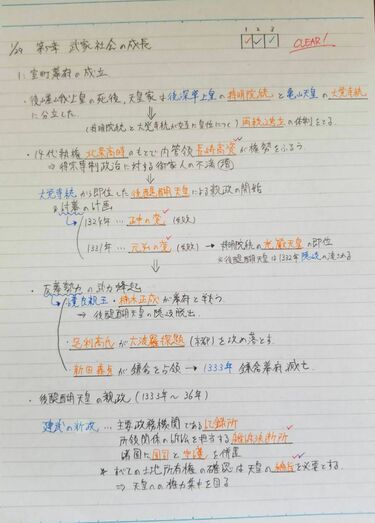 1/29 第5章 武家社会の成長
1 2 3
CLEAR!
1: 室町幕府の成立
・後嵯峨上皇の死後、天皇家は後深草上皇の持明院統と亀山天皇の大覚寺統
に分立した。
(持明院統と大覚寺統が交互に皇位につく) 両統迭立の体制をとる。
・14代執権 北条高時のもとで内管領長崎高資が権勢をふるう
⇒ 得宗専制政治に対する御家人の不満(増)
大覚寺統から即位した後醍醐天皇による親政の開始
※討幕の計画
1324年 … 正中の変 (失敗)
1331年 … 元弘の変 (失敗) → 持明院統の光厳天皇の即位
※後醍醐天皇は1332年 隠岐に流される
・反幕勢力の武力蜂起
護良親王・楠木正成が幕府と戦う。
→ 後醍醐天皇の隠岐脱出
・足利高氏が六波羅探題(京都)を攻め落とす。
・新田義貞が鎌倉を占領 → 1333年 鎌倉幕府滅亡
・後醍醐天皇の親政 (1333年〜36年)
建武の新政 … 主要政務機関である記録所
所領関係の訴訟を担当する雑訴決断所
諸国に国司と守護を併置
* すべての土地所有権の確認は天皇の綸旨を必要とする。
⇒ 天皇への権力集中を図る